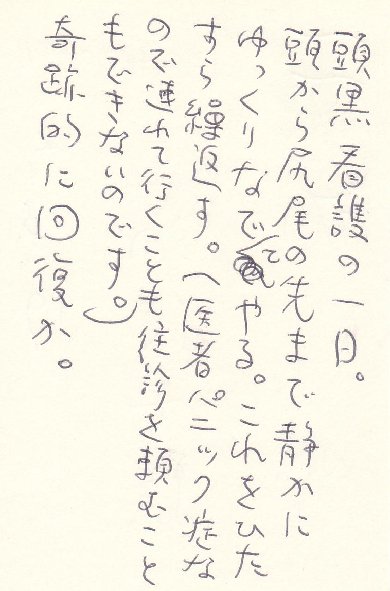 頭黒看護の一日。
頭から尻尾の先まで静かに
ゆっくりなでてやる。これをひた
すら繰返す。(医者パニック症な
ので連れて行くことも往診を頼むこと
もできないのです。)
奇跡的に回復か。